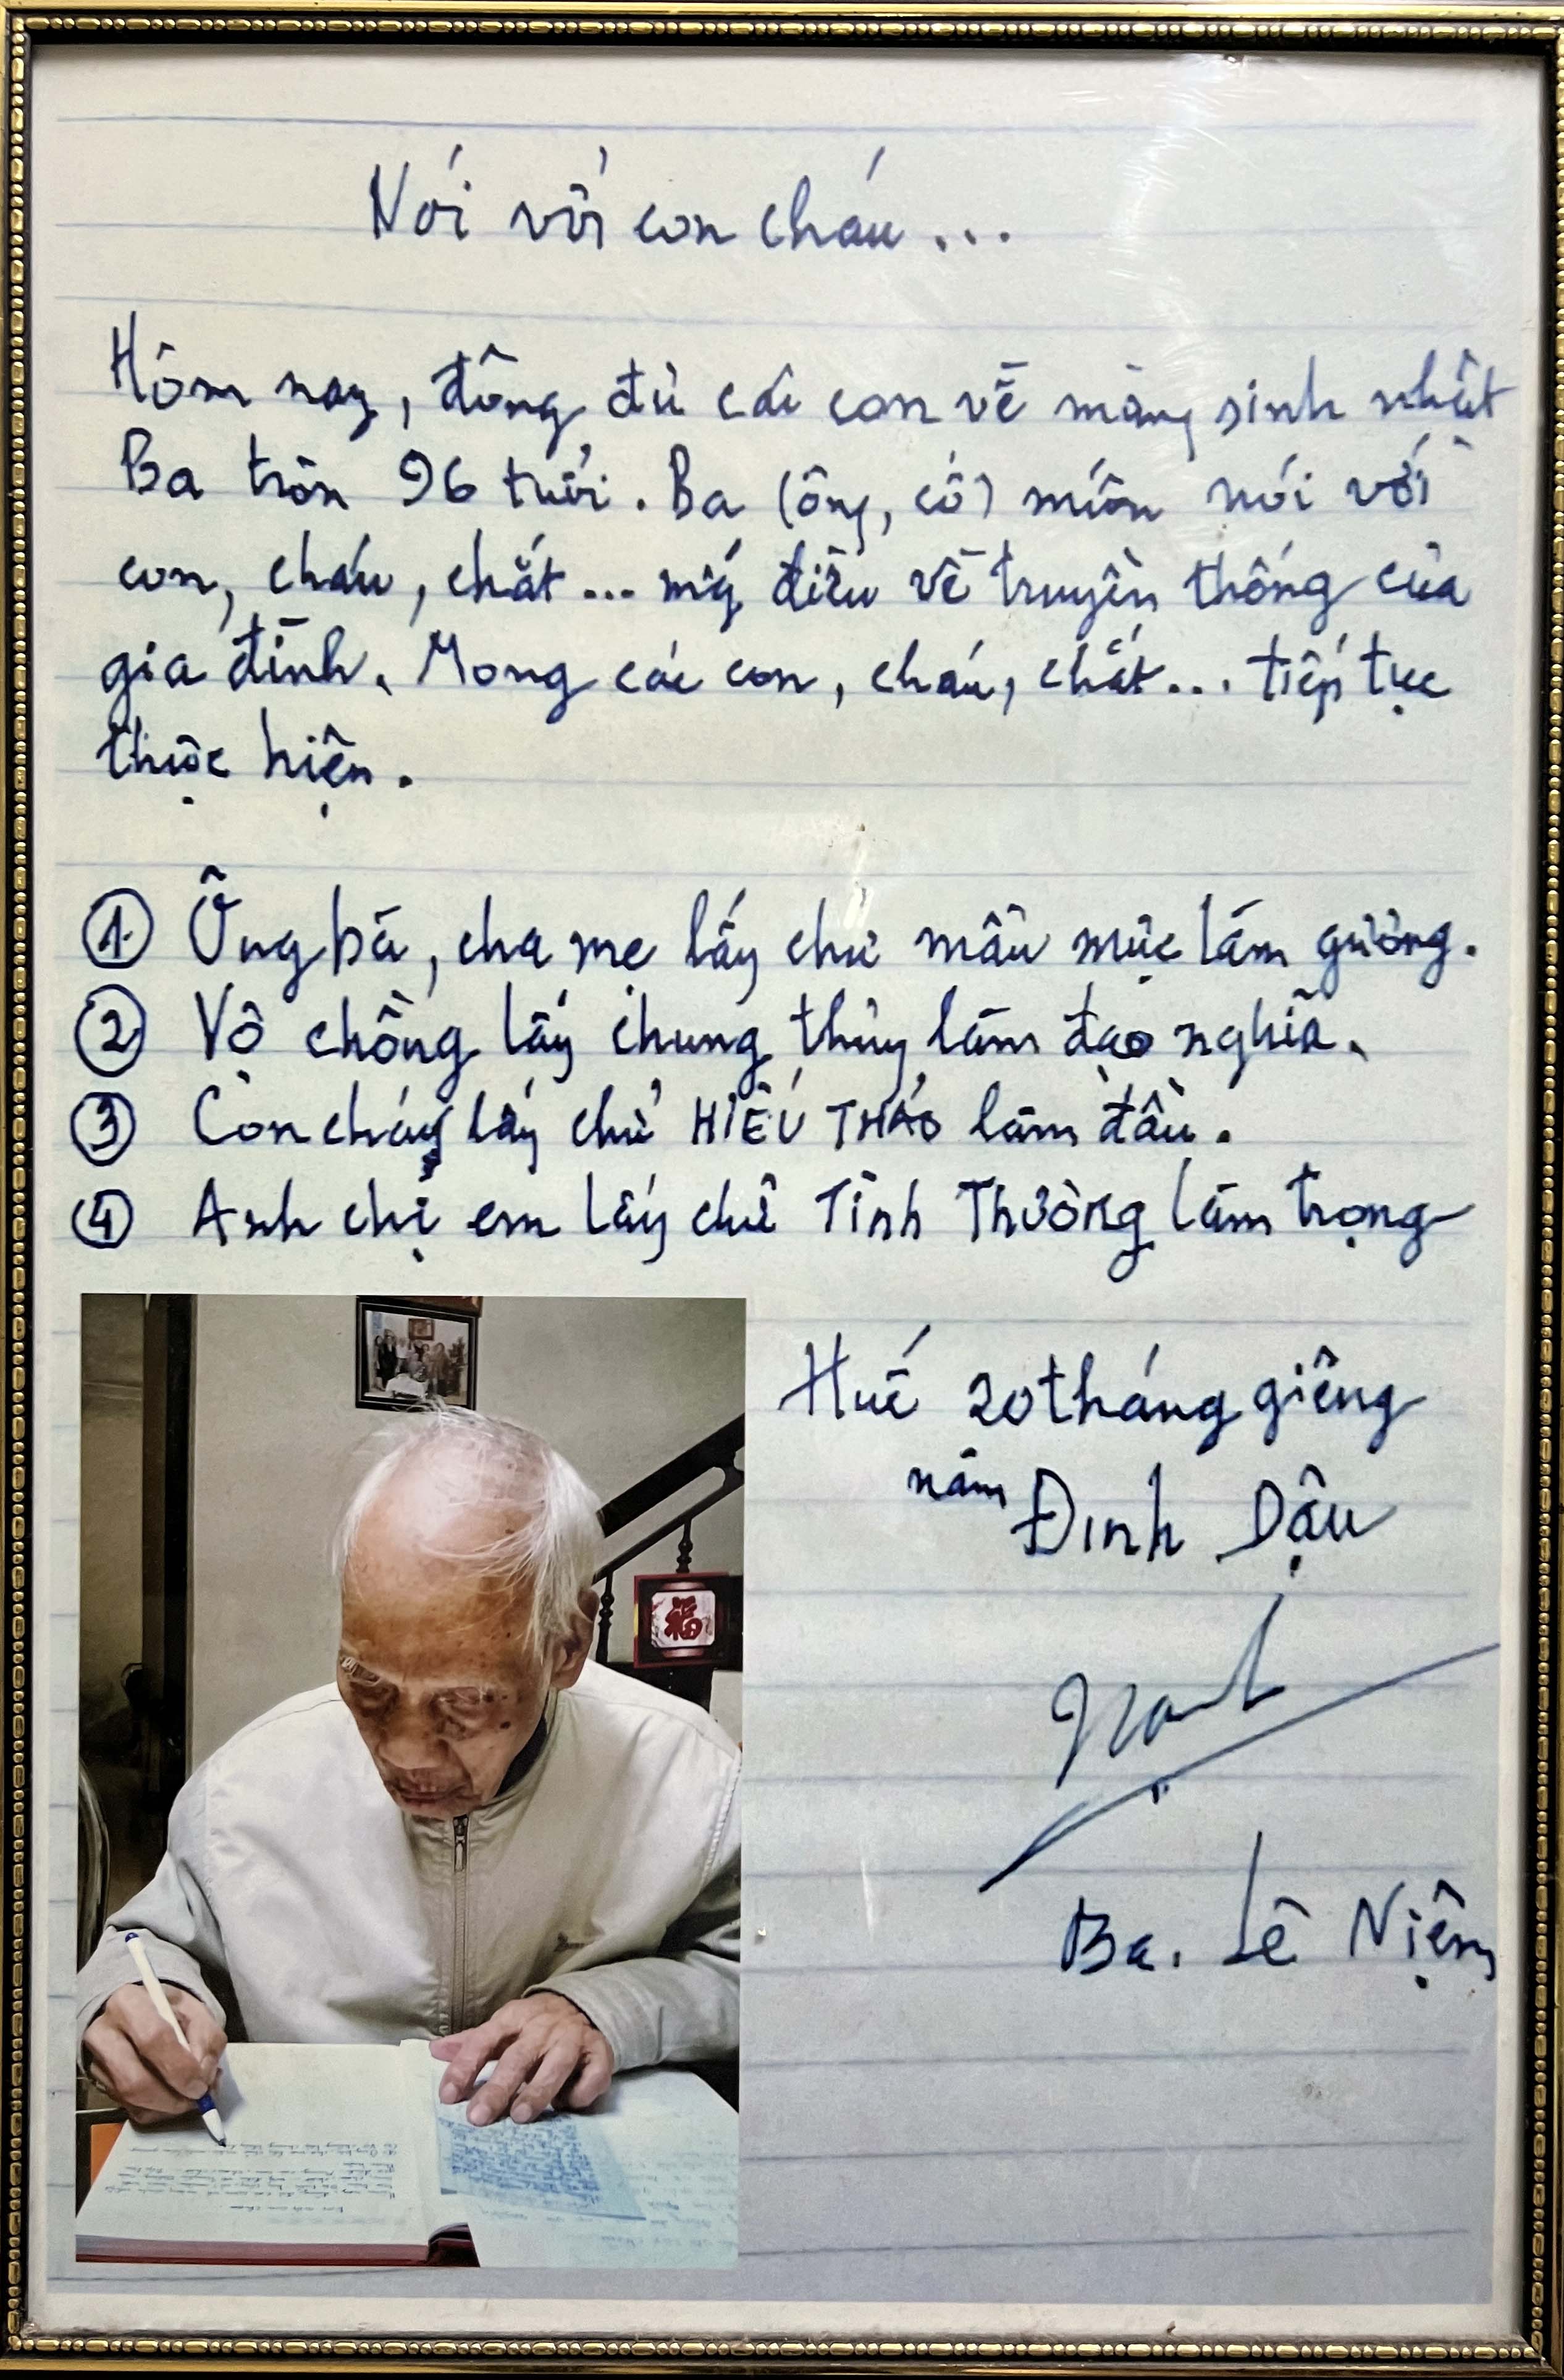 Nói với con cháu...
Hôm nay, đông đủ các con về mừng sinh nhật
Ba tròn 96 tuổi. Ba (ông, cố) muốn nói với
con, cháu, chắt... mấy điều về truyền thống của
gia đình. Mong các con, cháu, chắt... tiếp tục
thực hiện.
① Ông bà, cha mẹ lấy chữ mẫu mực làm gương.
② Vợ chồng lấy chung thủy làm đạo nghĩa.
③ Con cháu lấy chữ HIẾU THẢO làm đầu.
④ Anh chị em lấy chữ Tình Thương làm trọng
Huế 20 tháng giêng
năm Đinh Dậu
福
Ba. Lê Niệm